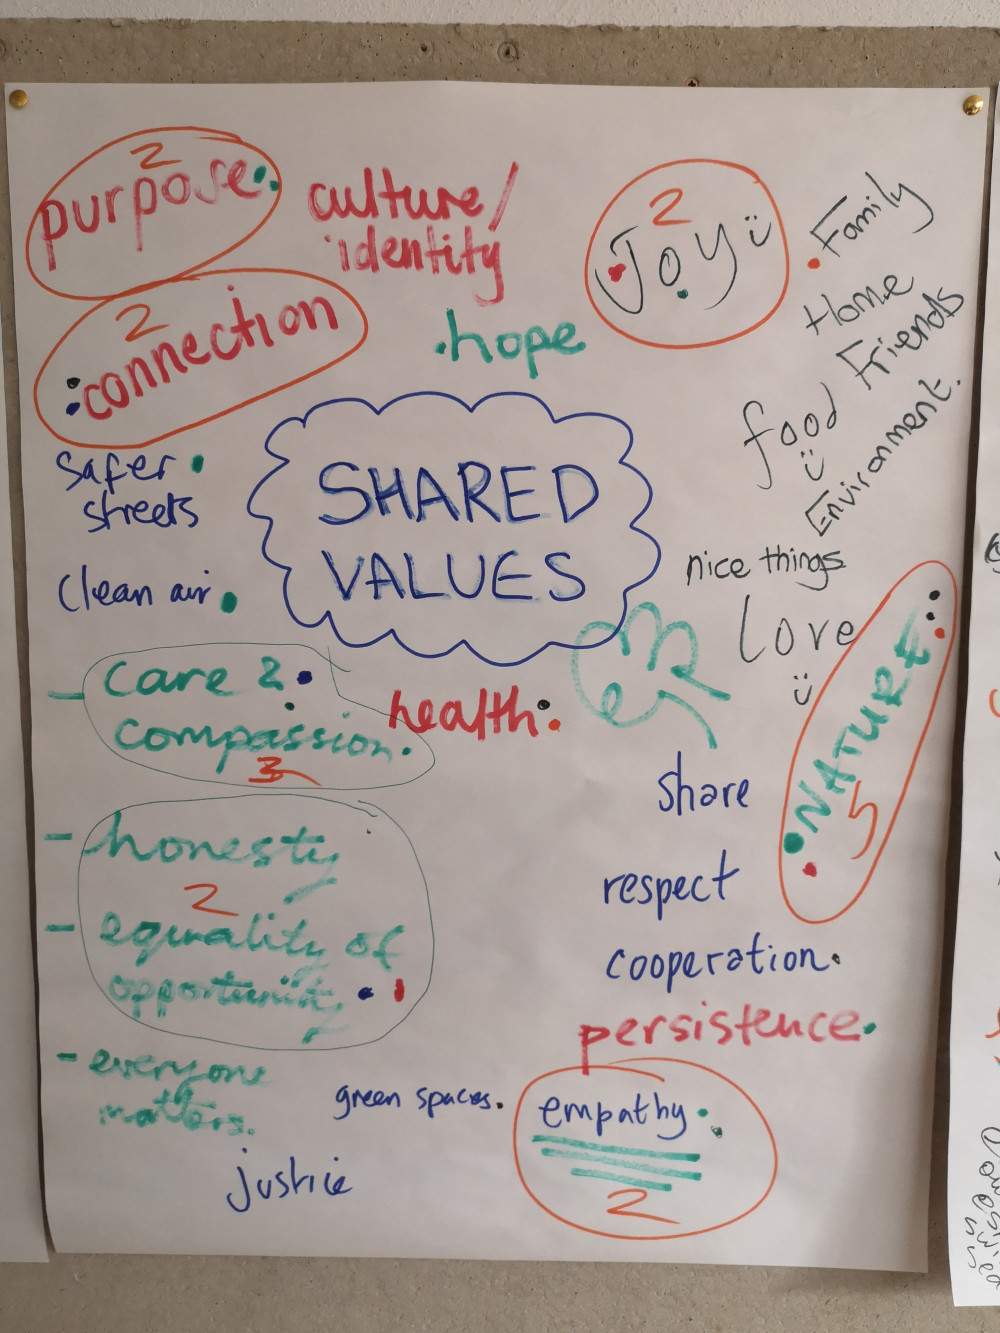 2
purpose
culture/
identity
2
Joy
Family
Home
Friends
food
Environment.
2
connection
hope
SHARED
VALUES
safer
streets
clean air
nice things
Love
NATURE
5
- care &
compassion.
3
health
share
respect
cooperation
persistence
- honesty
2
- equality of
opportunity
- everyone
matters.
green spaces
empathy
2
justice